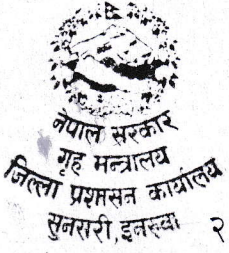 नेपाल सरकार
गृह मन्त्रालय
जिल्ला प्रशासन कार्यालय
सुनसरी, इनरुवा २